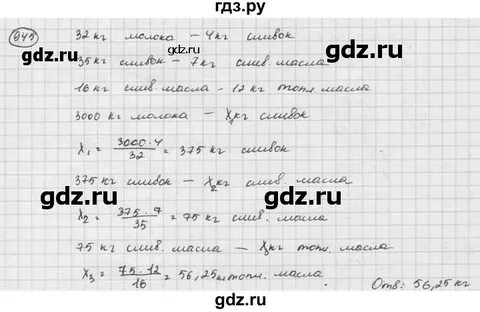 гдз.ру
945
32 кг молока — 4 кг сливок
35 кг сливок — 7 кг слив. масла
16 кг слив. масла - 12 кг топл. масла
3000 кг молока — X₁ кг сливок
X₁ = 3000 · 4 / 32 = 375 кг сливок
375 кг сливок — X₂ кг слив. масла
X₂ = 375 · 7 / 35 = 75 кг слив. масла
75 кг слив. масла — X₃ кг топл. масла
X₃ = 75 · 12 / 16 = 56,25 кг топл. масла
Отв: 56,25 кг
gdz.ru
gdz.ru
gdz.ru
gdz.ru
gdz.ru
gdz.ru
gdz.ru
gdz.ru
gdz.ru
gdz.ru